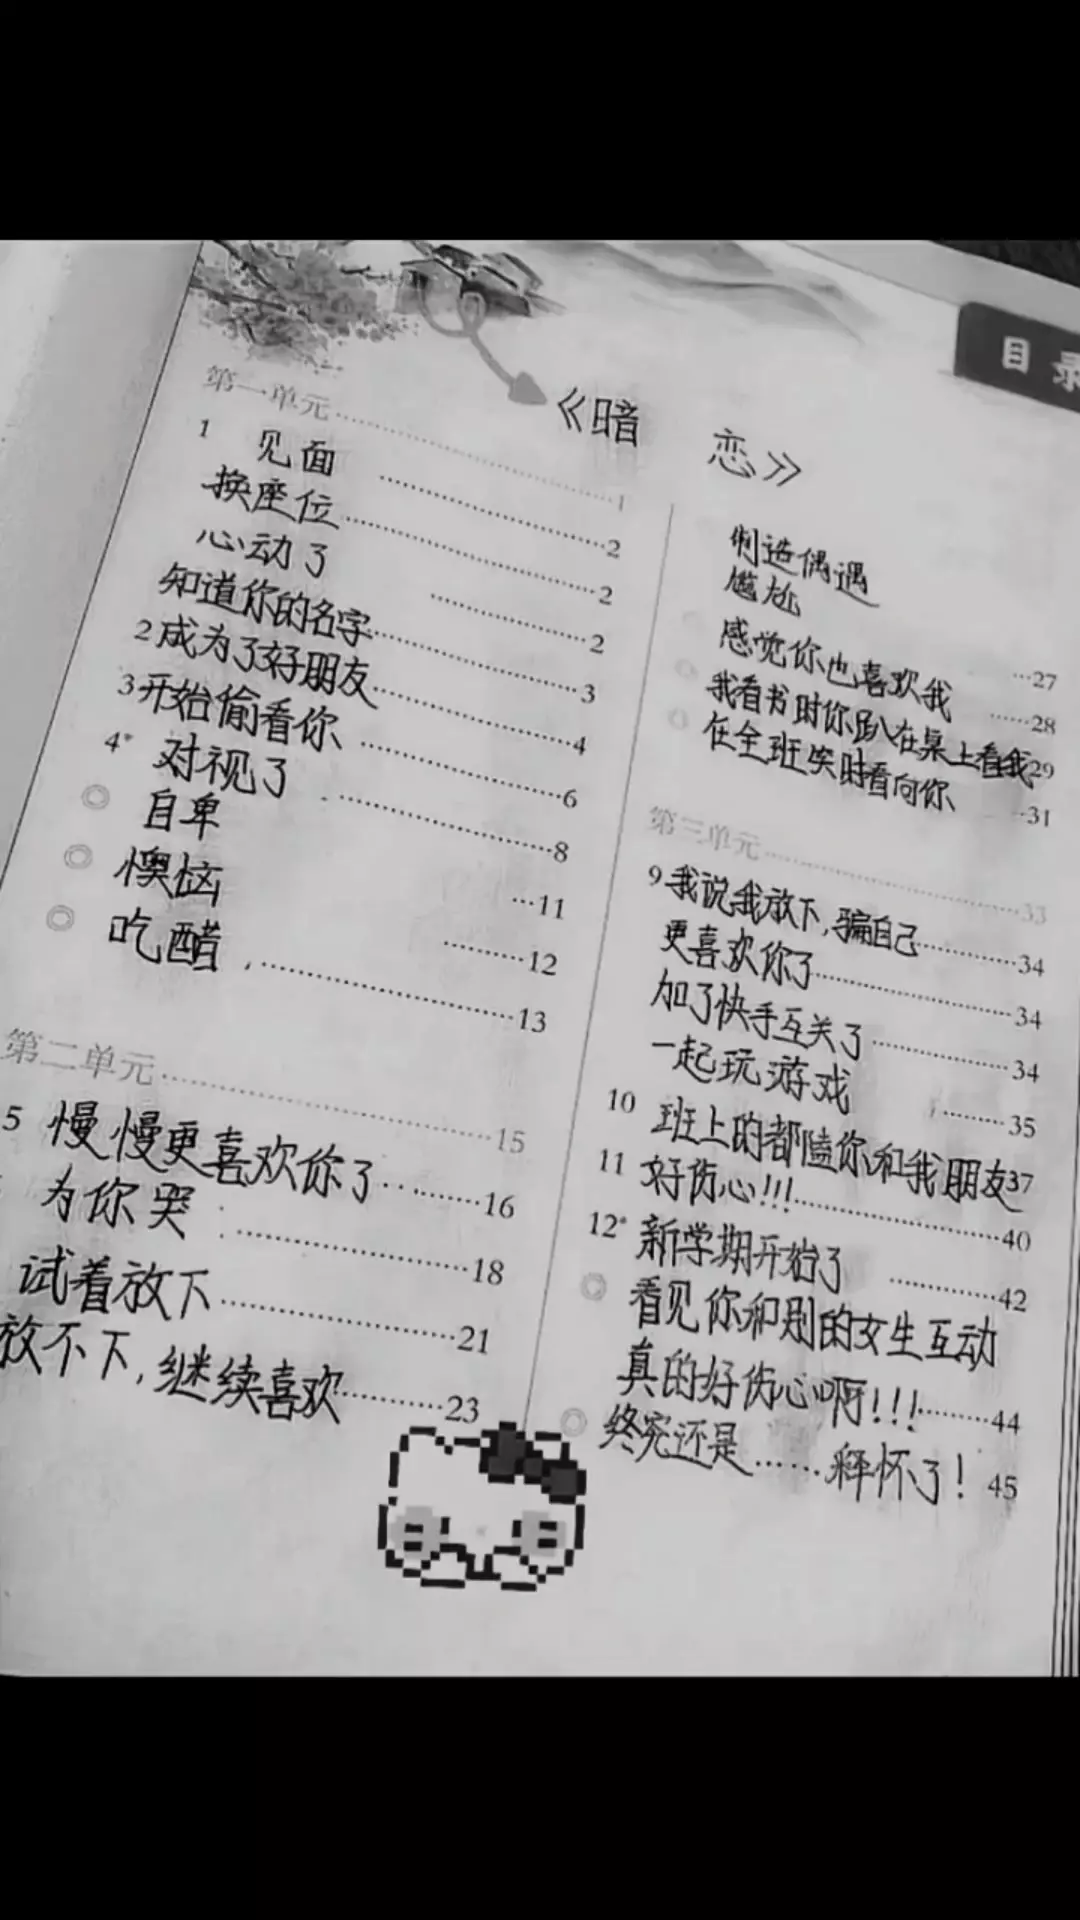 目录
《暗 恋》
第一单元……1
1 见面……2
换座位……2
心动了……2
知道你的名字……3
2 成为了好朋友……4
3 开始偷看你……6
4* 对视了……8
◎ 自卑…11
◎ 懊恼……12
◎ 吃醋……13
第二单元……15
5 慢慢更喜欢你了……16
为你哭……18
试着放下……21
放不下,继续喜欢……23
制造偶遇
尴尬
感觉你也喜欢我…27
我看书时你趴在桌上看我……28
29
在全班笑时看向你…31
第三单元……33
9 我说我放下,骗自己……34
更喜欢你了……34
加了快手互关了……34
一起玩游戏……35
10 班上的都嗑你和我朋友37
11 好伤心!!!……40
12* 新学期开始了……42
◎ 看见你和别的女生互动
真的好伤心啊!!!……44
◎ 终究还是……释怀了!45